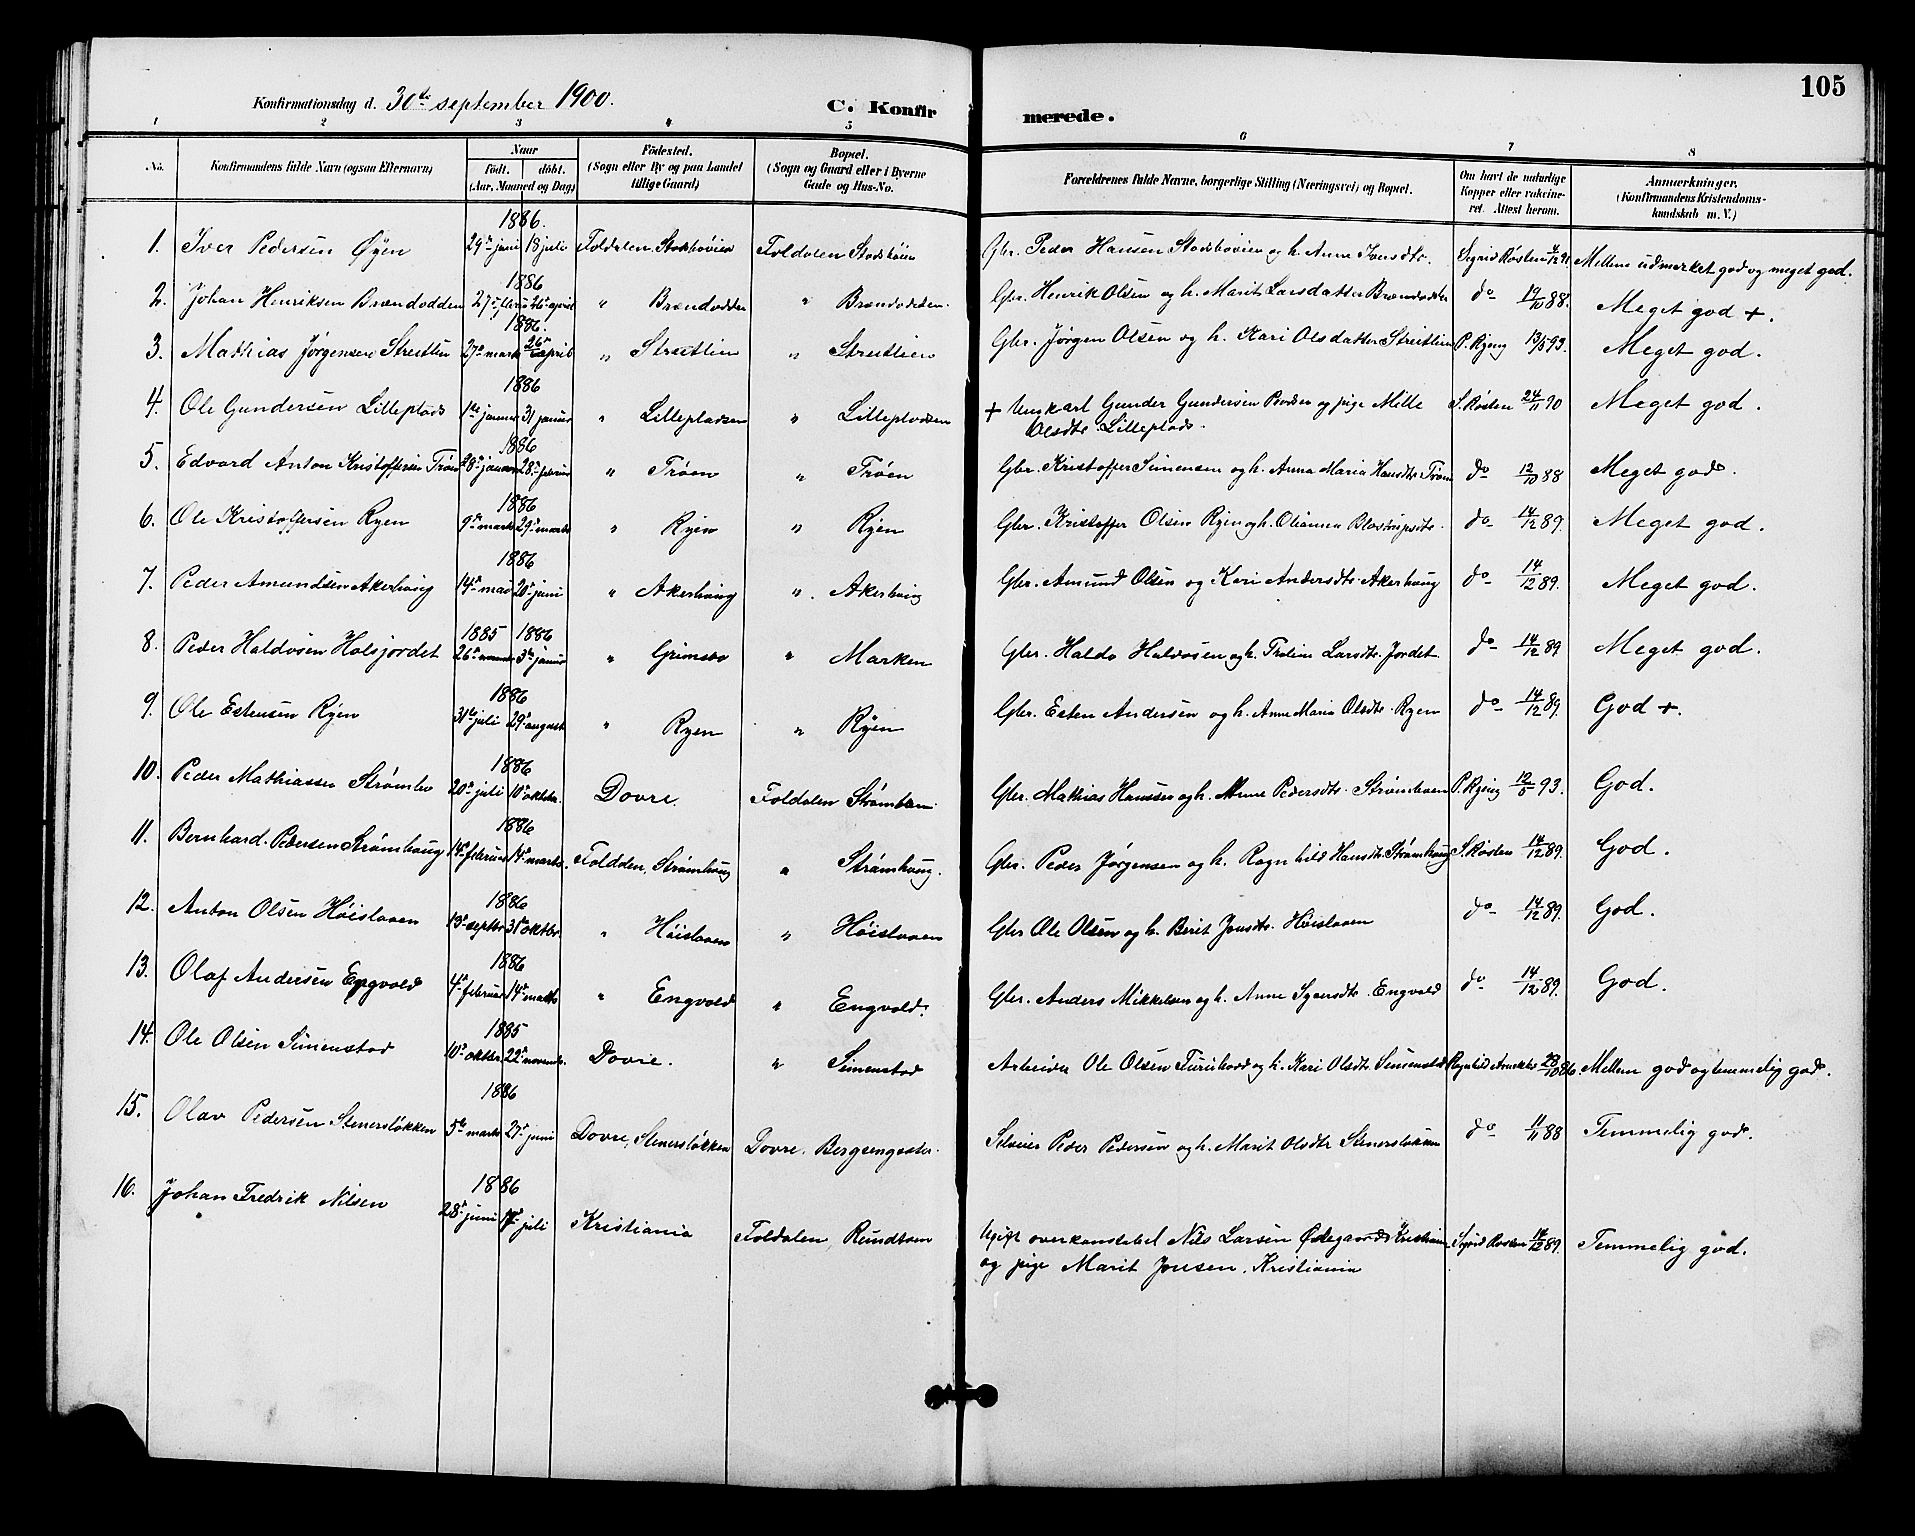 105
Konfirmationsdag d. 30te september 1900. C. Konfir merede.
1 2 3 4 5 6 7 8
No. Konfirmandens fulde Navn (ogsaa Efternavn) Naar født. døbt. (Aar, Maaned og Dag) Fødested. (Sogn eller By og paa Landet tillige Gaard) Bopæl. (Sogn og Gaard eller i Byerne Gade og Hus-No. Forældrenes fulde Navne, borgerlige Stilling (Næringsvei) og Bopæl. Om havt de naturlige Kopper eller vakcineret. Attest herom. Anmærkninger. (Konfirmandens Kristendomskundskab m. V.)
1886.
1. Iver Pedersen Øyen 29de juni 18 juli Foldalen Stadshøien Foldalen Stadshøien Gbr. Peder Hansen Stadshøien og h. Anne Iversdtr. Sigrid Røsten 4/12 91. Mellem udmerket god og meget god.
1886
2. Johan Henriksen Brændodden 27de febru 26de april " Brændodden " Brændodden Gbr. Henrik Olsen og h. Marit Larsdatter Brændodden do 19/10 88. Meget god +.
1886.
3. Mathias Jørgensen Streitlien 27de marts 26de april " Streitlien " Streitlien Gbr. Jørgen Olsen og h. Kari Olsdatter Streitlien P. Ryeng 13/5 93. Meget god.
1886
4. Ole Gundersen Lilleplads 1ste januar 31 januar " Lillepladsen " Lillepladsen + Ungkarl Gunder Gundersen og pige Mille Meget god.
Olsdtr. Lilleplads. S. Røsten 24/11 90
1886
5. Edvard Anton Kristoffersen Trøen 28de januar 28de februar " Trøen " Trøen Gbr. Kristoffer Simensen og h. Anna Maria Hansdtr. Trøen do 12/10 88 Meget god.
1886
6. Ole Kristoffersen Ryen 9de marts 29de marts " Ryen " Ryen Gbr. Kristoffer Olsen Ryen og h. Olianna do 14/12 89. Meget god.
1886
7. Peder Amundsen Akerhaug 14de mai 20de juni " Akerhaug " Akerhaug Gbr. Amund Olsen og Kari Andersdtr. Akerhaug do 14/12 89. Meget god.
1885 1886
8. Peder Haldosen Halsjordet 26de 3de januar " Grimsbo " Marken Gbr. Haldo Haldosen og h. Larsdtr. Jordet do 14/12 89 Meget god.
1886
9. Ole Estensen Ryen 31te juli 29de august " Ryen " Ryen Gbr. Esten Andersen og h. Anne Maria Olsdtr. Ryen do 14/12 89. God +.
1886
10. Peder Mathiassen Strømbu 20de juli 10de oktbr. Dovre. Foldalen Strømbuen Gbr. Mathias Hansen og h. Anne Pedersdtr. Strømbuen P. Ryeng 12/5 93. God.
1886
11. Bernhard Pedersen Strømhaug 14de februar 14de marts. Foldalen, Strømhaug " Strømhaug. Gbr. Peder Jørgensen og h. Ragnhild Hansdtr. Strømhaug S. Røsten 14/12 89. God.
1886
12. Anton Olsen Høislaaen 13de septbr. 31te oktbr. " Høislaaen " Høislaaen Gbr Ole Olsen og h. Berit Jonsdtr. Høislaaen do 14/12 89. God.
1886
13. Olaf Andersen Engvold 4de februar 14de marts " Engvold " Engvold. Gbr. Anders Mikkelsen og h. Anne Syversdtr. Engvold do 14/12 89. God.
1885
14. Ole Olsen Simenstad 10de oktbr. 22de novemb. Dovre. " Simenstad Arbeider Ole Olsen og h. Kari Olsdtr. Simenstad Ragnhild 28/10 86. Mellem god og temmelig god.
1886
15. Olav Pedersen Stenersløkken 5te marts 27de juni Dovre, Stenersløkken Dovre. Bergsengsæter. Selveier Peder Pedersen og h. Marit Olsdtr Stenersløkken do 11/11 88 Temmelig god.
1886
16. Johan Fredrik Nilsen 28de juni juli Kristiania Foldalen, Rundtom Ugift overkonstabel Nils Larsen Ødegaard, Kristiania Sigrid Røsten 14/12 89. Temmelig god.
og pige Marit Jonsen, Kristiania